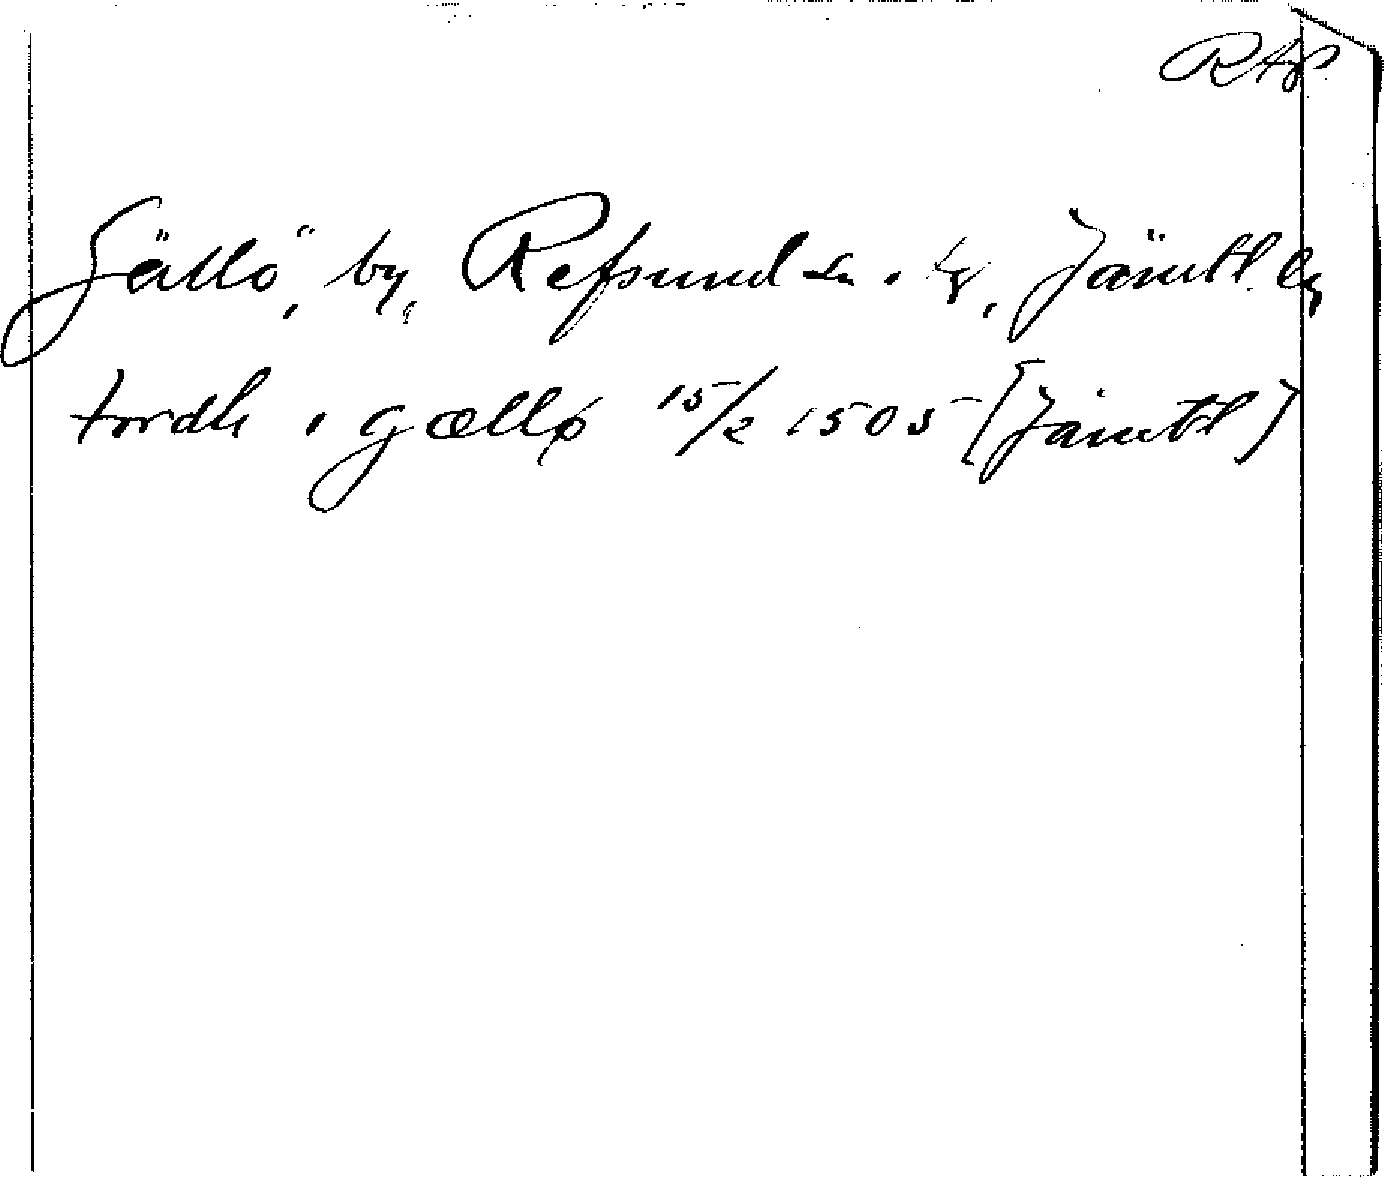 RAp
Gällö, by, Refsund sn. o. tg, Jämtl. l,
tordh i gællø 15/2 1505 [Jämtl]